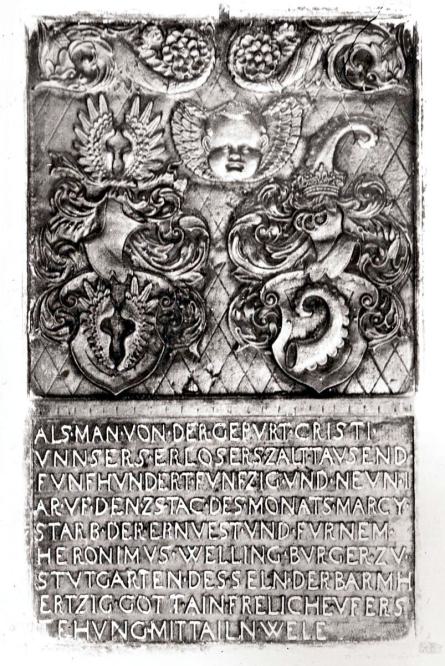 ALS·MAN·VON·DER·GEPVRT·CRISTI
VNNSERS·ERLOSERS·ZALT·TAVSEND
FVNFHVNDERT·FVNFZIG·VND·NEVN·I
AR·VF·DEN·25·TAG·DES·MONATS·MARCY
STARB·DER·ERNVEST·VND·FVRNEM·
HERONIMVS·WELLING·BVRGER·ZV·
STVTGARTEN·DES·SELN·DER·BARMH
ERTZIG·GOT·TAIN·FRELICHE·VFERS
TEHVNG·MITTAILN·WELE